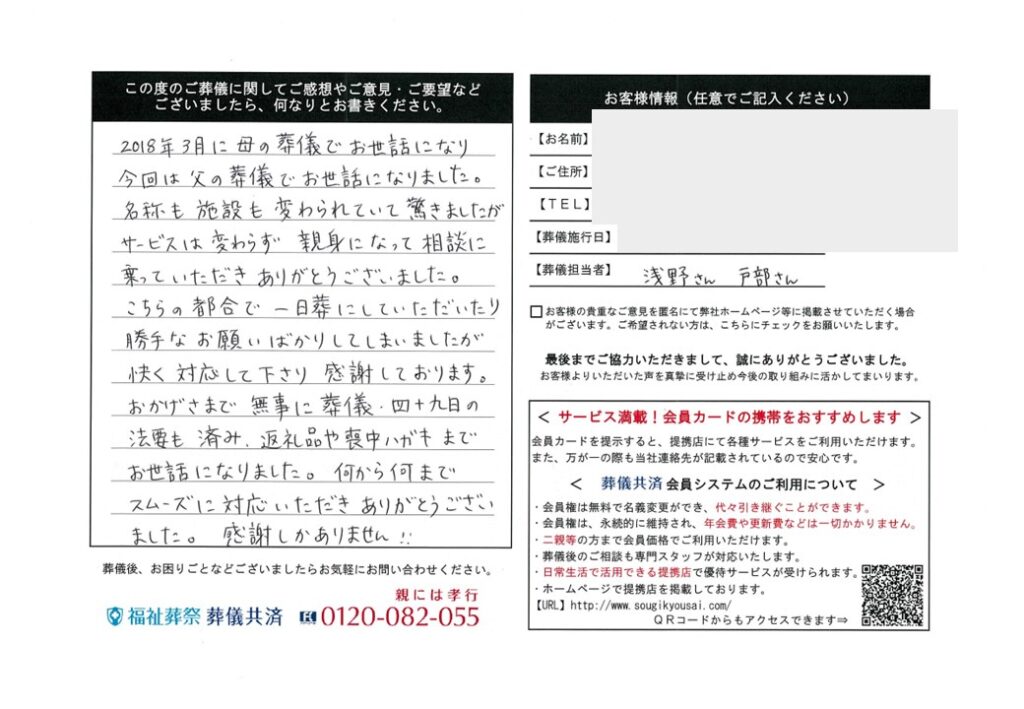 この度のご葬儀に関してご感想やご意見・ご要望など
ございましたら、何なりとお書きください。
2018年3月に母の葬儀でお世話になり
今回は父の葬儀でお世話になりました。
名称も施設も変わられていて驚きましたが
サービスは変わらず親身になって相談に
乗っていただきありがとうございました。
こちらの都合で一日葬にしていただいたり
勝手なお願いばかりしてしまいましたが
快く対応して下さり感謝しております。
おかげさまで無事に葬儀・四十九日の
法要も済み、返礼品や喪中ハガキまで
お世話になりました。何から何まで
スムーズに対応いただきありがとうござい
ました。感謝しかありません!!
葬儀後、お困りごとなどございましたらお気軽にお問い合わせください。
親には孝行
福祉葬祭 葬儀共済 0120-082-055
お客様情報（任意でご記入ください）
【お名前】
【ご住所】
【TEL】
【葬儀施行日】
【葬儀担当者】 浅野さん 戸部さん
□お客様の貴重なご意見を匿名にて弊社ホームページ等に掲載させていただく場合
がございます。ご希望されない方は、こちらにチェックをお願いいたします。
最後までご協力いただきまして、誠にありがとうございました。
お客様よりいただいた声を真摯に受け止め今後の取り組みに活かしてまいります。
＜ サービス満載！会員カードの携帯をおすすめします ＞
会員カードを提示すると、提携店にて各種サービスをご利用いただけます。
また、万が一の際も当社連絡先が記載されているので安心です。
＜ 葬儀共済 会員システムのご利用について ＞
・会員権は無料で名義変更ができ、代々引き継ぐことができます。
・会員権は、永続的に維持され、年会費や更新費などは一切かかりません。
・二親等の方まで会員価格でご利用いただけます。
・葬儀後のご相談も専門スタッフが対応いたします。
・日常生活で活用できる提携店で優待サービスが受けられます。
・ホームページで提携店を掲載しております。
【URL】http://www.sougikyousai.com/
QRコードからもアクセスできます⇒